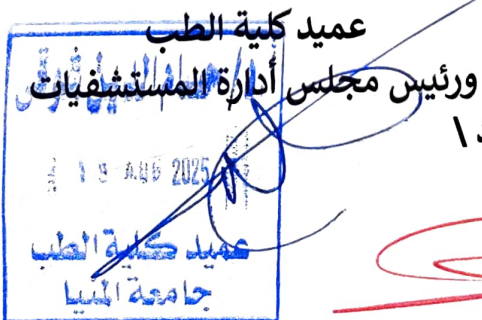 عميد كلية الطب
ورئيس مجلس أدارة المستشفيات
19 AUG 2025
عميد كلية الطب
جامعة المنيا